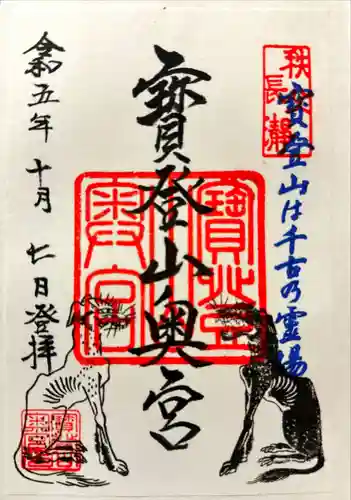 秩父
長瀞
寶登山は千古乃霊場
寶登山奥宮
令和五年十月七日登拝
寶登山奥宮